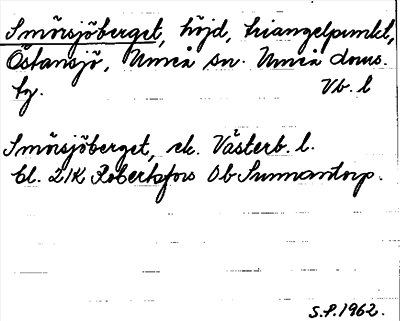 Smörsjöberget, höjd, triangelpunkt,
Östansjö, Umeå sn. Umeå doms.
tg. Vb. l
Smörsjöberget, ek. Västerb. l.
bl. 21K Robertsfors Ob Sunnantorp.
S.P. 1962.